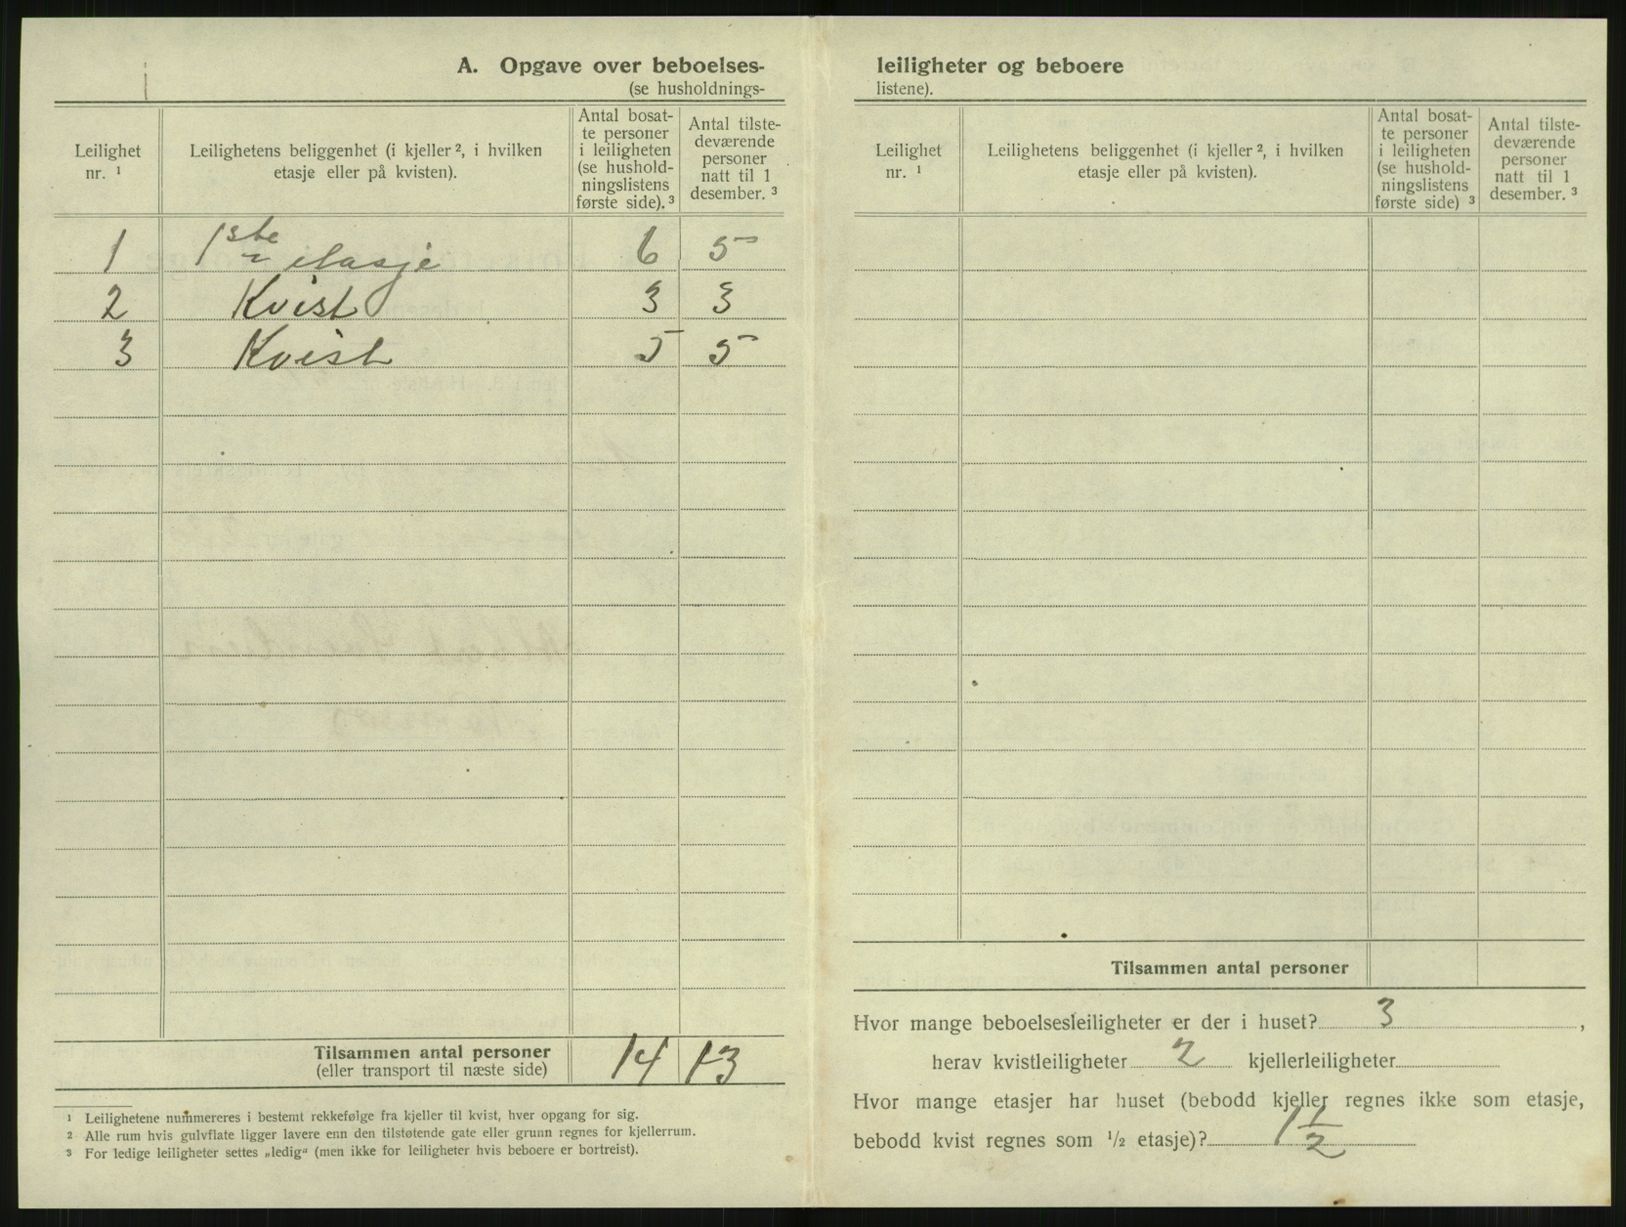 A. Opgave over beboelses-
(se husholdnings-
Leilighet
nr. ¹
Leilighetens beliggenhet (i kjeller ², i hvilken
etasje eller på kvisten).
Antal bosat-
te personer
i leiligheten
(se hushold-
ningslistens
første side). ³
Antal tilste-
deværende
personer
natt til 1
desember. ³
1 1ste etasje 6 5
2 Kvist 3 3
3 Kvist 5 5
Tilsammen antal personer
(eller transport til næste side)
14 13
¹ Leilighetene nummereres i bestemt rekkefølge fra kjeller til kvist, hver opgang for sig.
² Alle rum hvis gulvflate ligger lavere enn den tilstøtende gate eller grunn regnes for kjellerrum.
³ For ledige leiligheter settes „ledig“ (men ikke for leiligheter hvis beboere er bortreist).
leiligheter og beboere
listene).
Leilighet
nr. ¹
Leilighetens beliggenhet (i kjeller ², i hvilken
etasje eller på kvisten).
Antal bosat-
te personer
i leiligheten
(se hushold-
ningslistens
første side) ³
Antal tilste-
deværende
personer
natt til 1
desember. ³
Tilsammen antal personer
Hvor mange beboelsesleiligheter er der i huset? 3 ,
herav kvistleiligheter 2 kjellerleiligheter
Hvor mange etasjer har huset (bebodd kjeller regnes ikke som etasje,
bebodd kvist regnes som ½ etasje)? 1 1/2